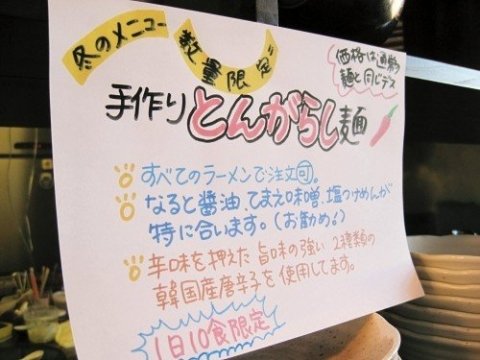 冬のメニュー
数量限定
価格は通常の
麺と同じデス
手作りとんがらし麺
すべてのラーメンで注文可。
なると醤油、てまえ味噌、塩つけめんが
特に合います。(お勧め。)
辛味を押えた旨味の強い2種類の
韓国産唐辛子を使用してます。
1日10食限定